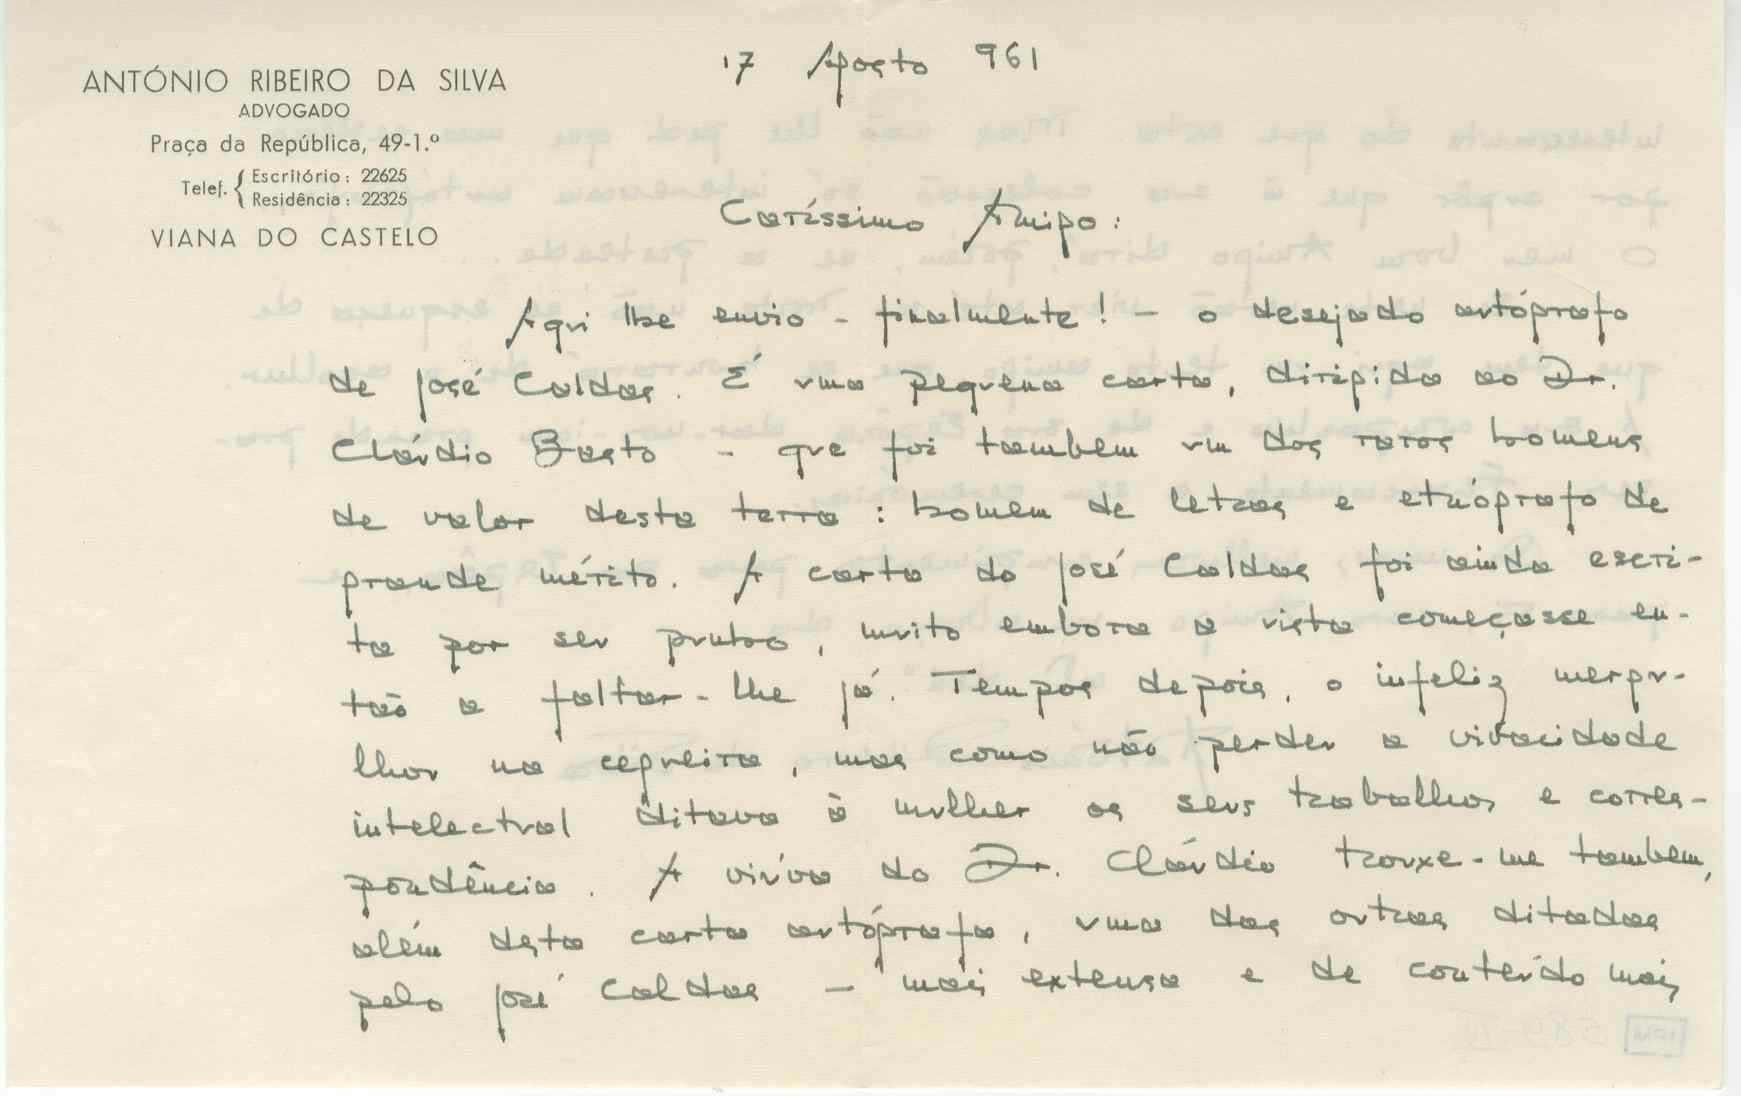 ANTÓNIO RIBEIRO DA SILVA
ADVOGADO
Praça da República, 49-1.º
Telef. { Escritório : 22625
Residência : 22325
VIANA DO CASTELO
17 Agosto 961
Caríssimo Amigo :
Aqui lhe envio - finalmente ! - o desejado autógrafo
de José Caldas. É uma pequena carta, dirigida ao Dr.
Cláudio Basto - que foi tambem um dos raros homens
de valor desta terra : homem de letras e etnógrafo de
grande mérito. A carta do José Caldas foi ainda escri-
ta por seu punho, muito embora a vista começasse en-
tão a faltar-lhe já. Tempos depois, o infeliz mergu-
lhou na cegueira, mas como não perdeu a vivacidade
intelectual ditava à mulher os seus trabalhos e corres-
pondência. A viúva do Dr. Cláudio trouxe-me tambem,
além desta carta autógrafa, uma das outras ditadas
pelo José Caldas - mais extensa e de conteúdo mais